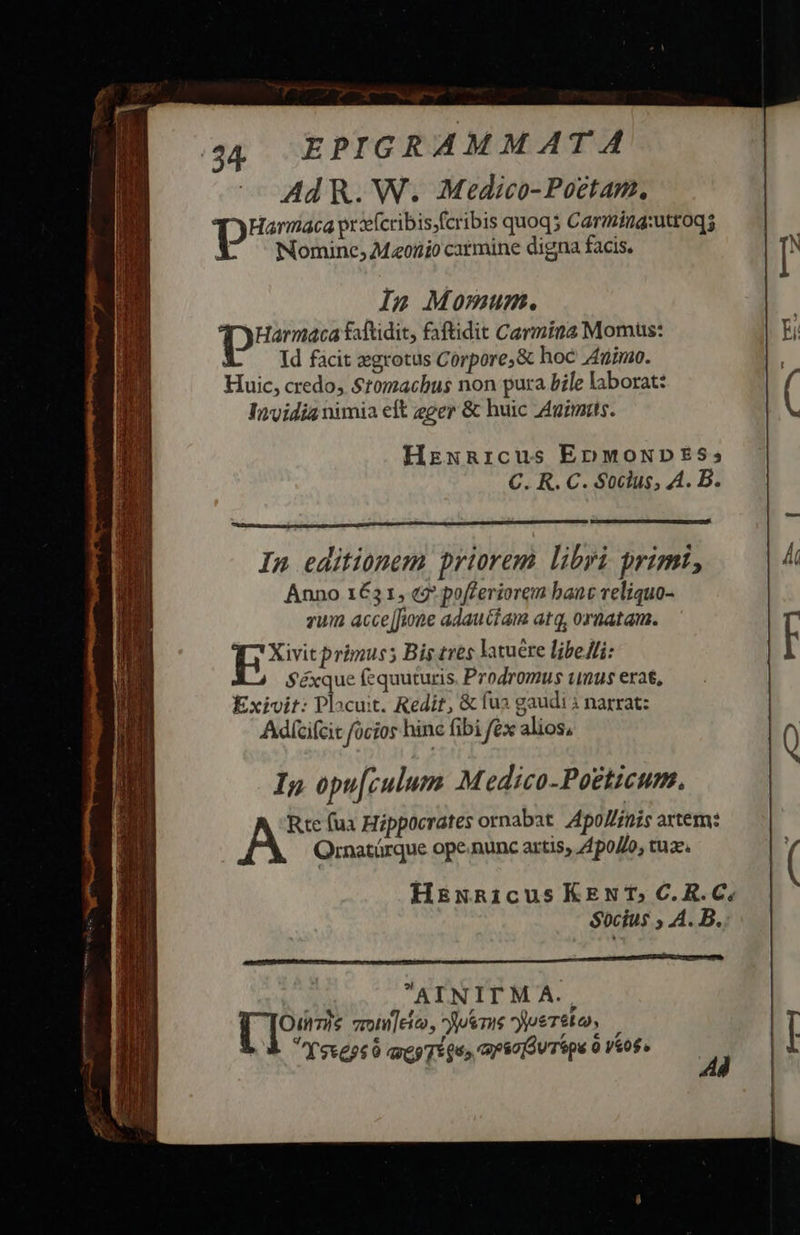 34 EPIGRAMMATA
Ad R. W. Medico-Poëtam.
PHarmaca præſcribis, ſcribis quoq; Carmina: utroq;
Nomine, Mæonio carmine digna facis.
In Momum.
PHarmaca faſtidit, faſtidit Carmina Momus:
Id facit ægrotus Corpore, & hoc Animo.
Huic, credo, Stomachus non pura bile laborat:
Invidia nimia eſt æger & huic Animus.
HENRICUS EDMONDES,
C. R. C. Socius, A. B.
In editionem priorem libri primi,
Anno 1631, & poſteriorem hanc reliquo-
rum acceſſione adauctam atq, ornatam.
EXivit primus; Bis tres latuêre libelli:
Séxque ſequuturis Prodromus unus erat,
Exivit: Placuit. Redit, & ſua gaudia narrat:
Adſciſcit ſócios hinc ſibi ſéx alios.
In opuſculum Medico-Poëticum.
ARte ſua Hippocrates ornabat Apollinis artem:
Ornatúrque ope nunc artis, Apollo, tuæ.
HENRICUS KENT, C. R. C.
Socius, A. B.
ΑἼΝΙΓΜΑ.
Ὕστερος ὁ πρότερος, πρεσβύτερος ὁ νέος.
Ad